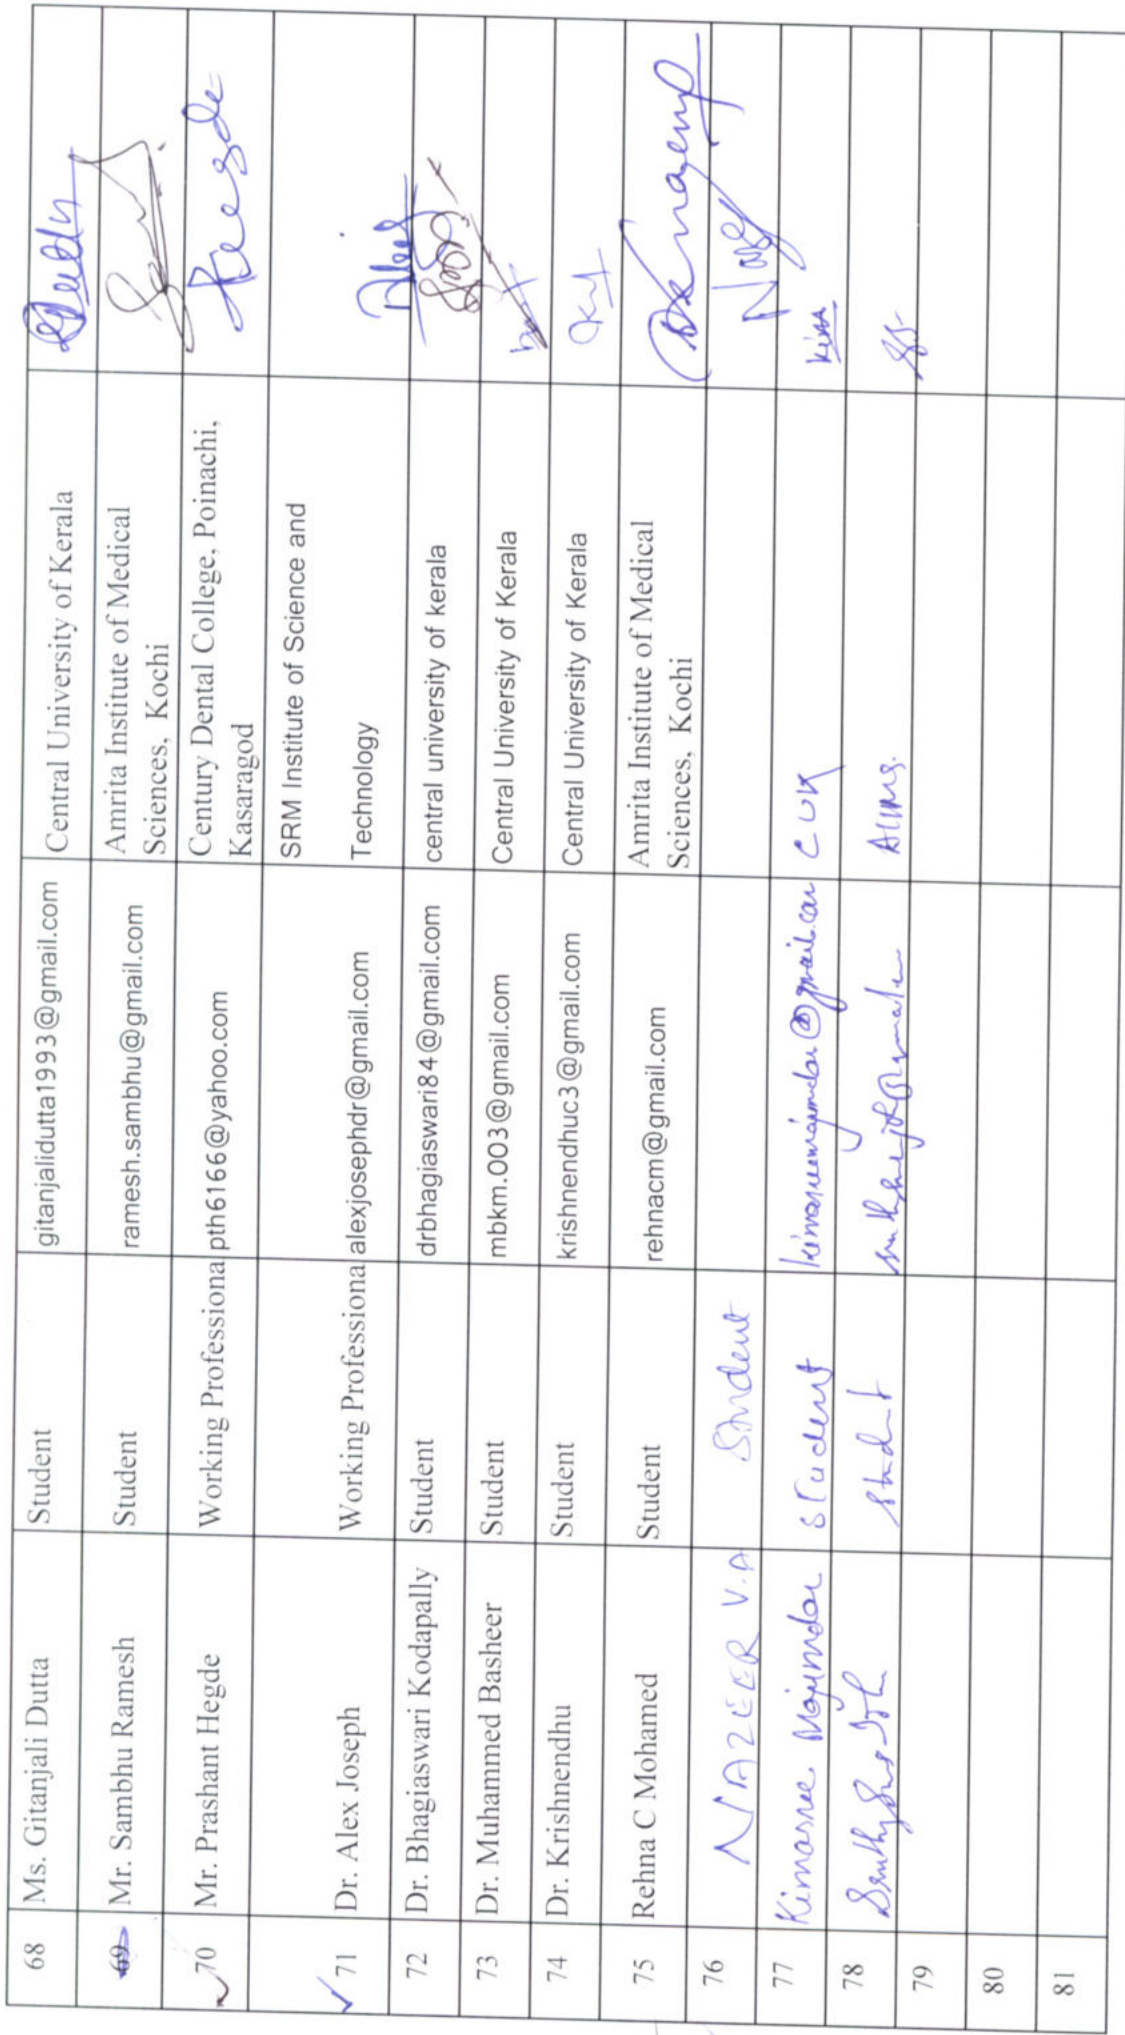 68 Ms. Gitanjali Dutta Student gitanjalidutta1993@gmail.com Central University of Kerala
69 Mr. Sambhu Ramesh Student ramesh.sambhu@gmail.com Amrita Institute of Medical
Sciences, Kochi
70 Mr. Prashant Hegde Working Professional pth6166@yahoo.com Century Dental College, Poinachi,
Kasaragod
SRM Institute of Science and
71 Dr. Alex Joseph Working Professional alexjosephdr@gmail.com Technology
72 Dr. Bhagiaswari Kodapally Student drbhagiaswari84@gmail.com central university of kerala
73 Dr. Muhammed Basheer Student mbkm.003@gmail.com Central University of Kerala
74 Dr. Krishnendhu Student krishnendhuc3@gmail.com Central University of Kerala
75 Rehna C Mohamed Student rehnacm@gmail.com Amrita Institute of Medical
Sciences, Kochi
76 NAZEER V.A Student
77 Kimasree Majumdar Student kimasreemajumdar@gmail.com CUK
78 Student AIIMS.
79
80
81